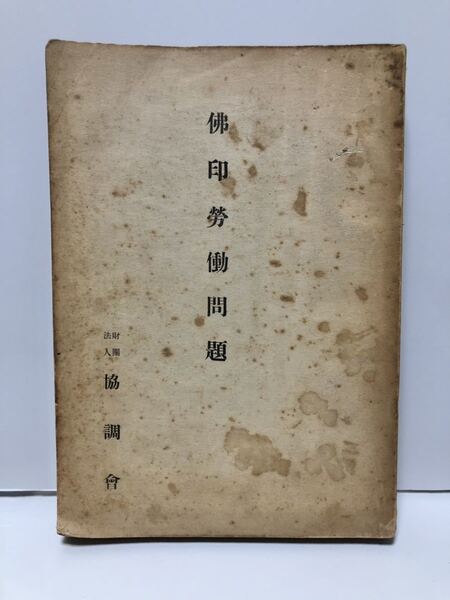 佛印勞働問題
財團
法人
協調會